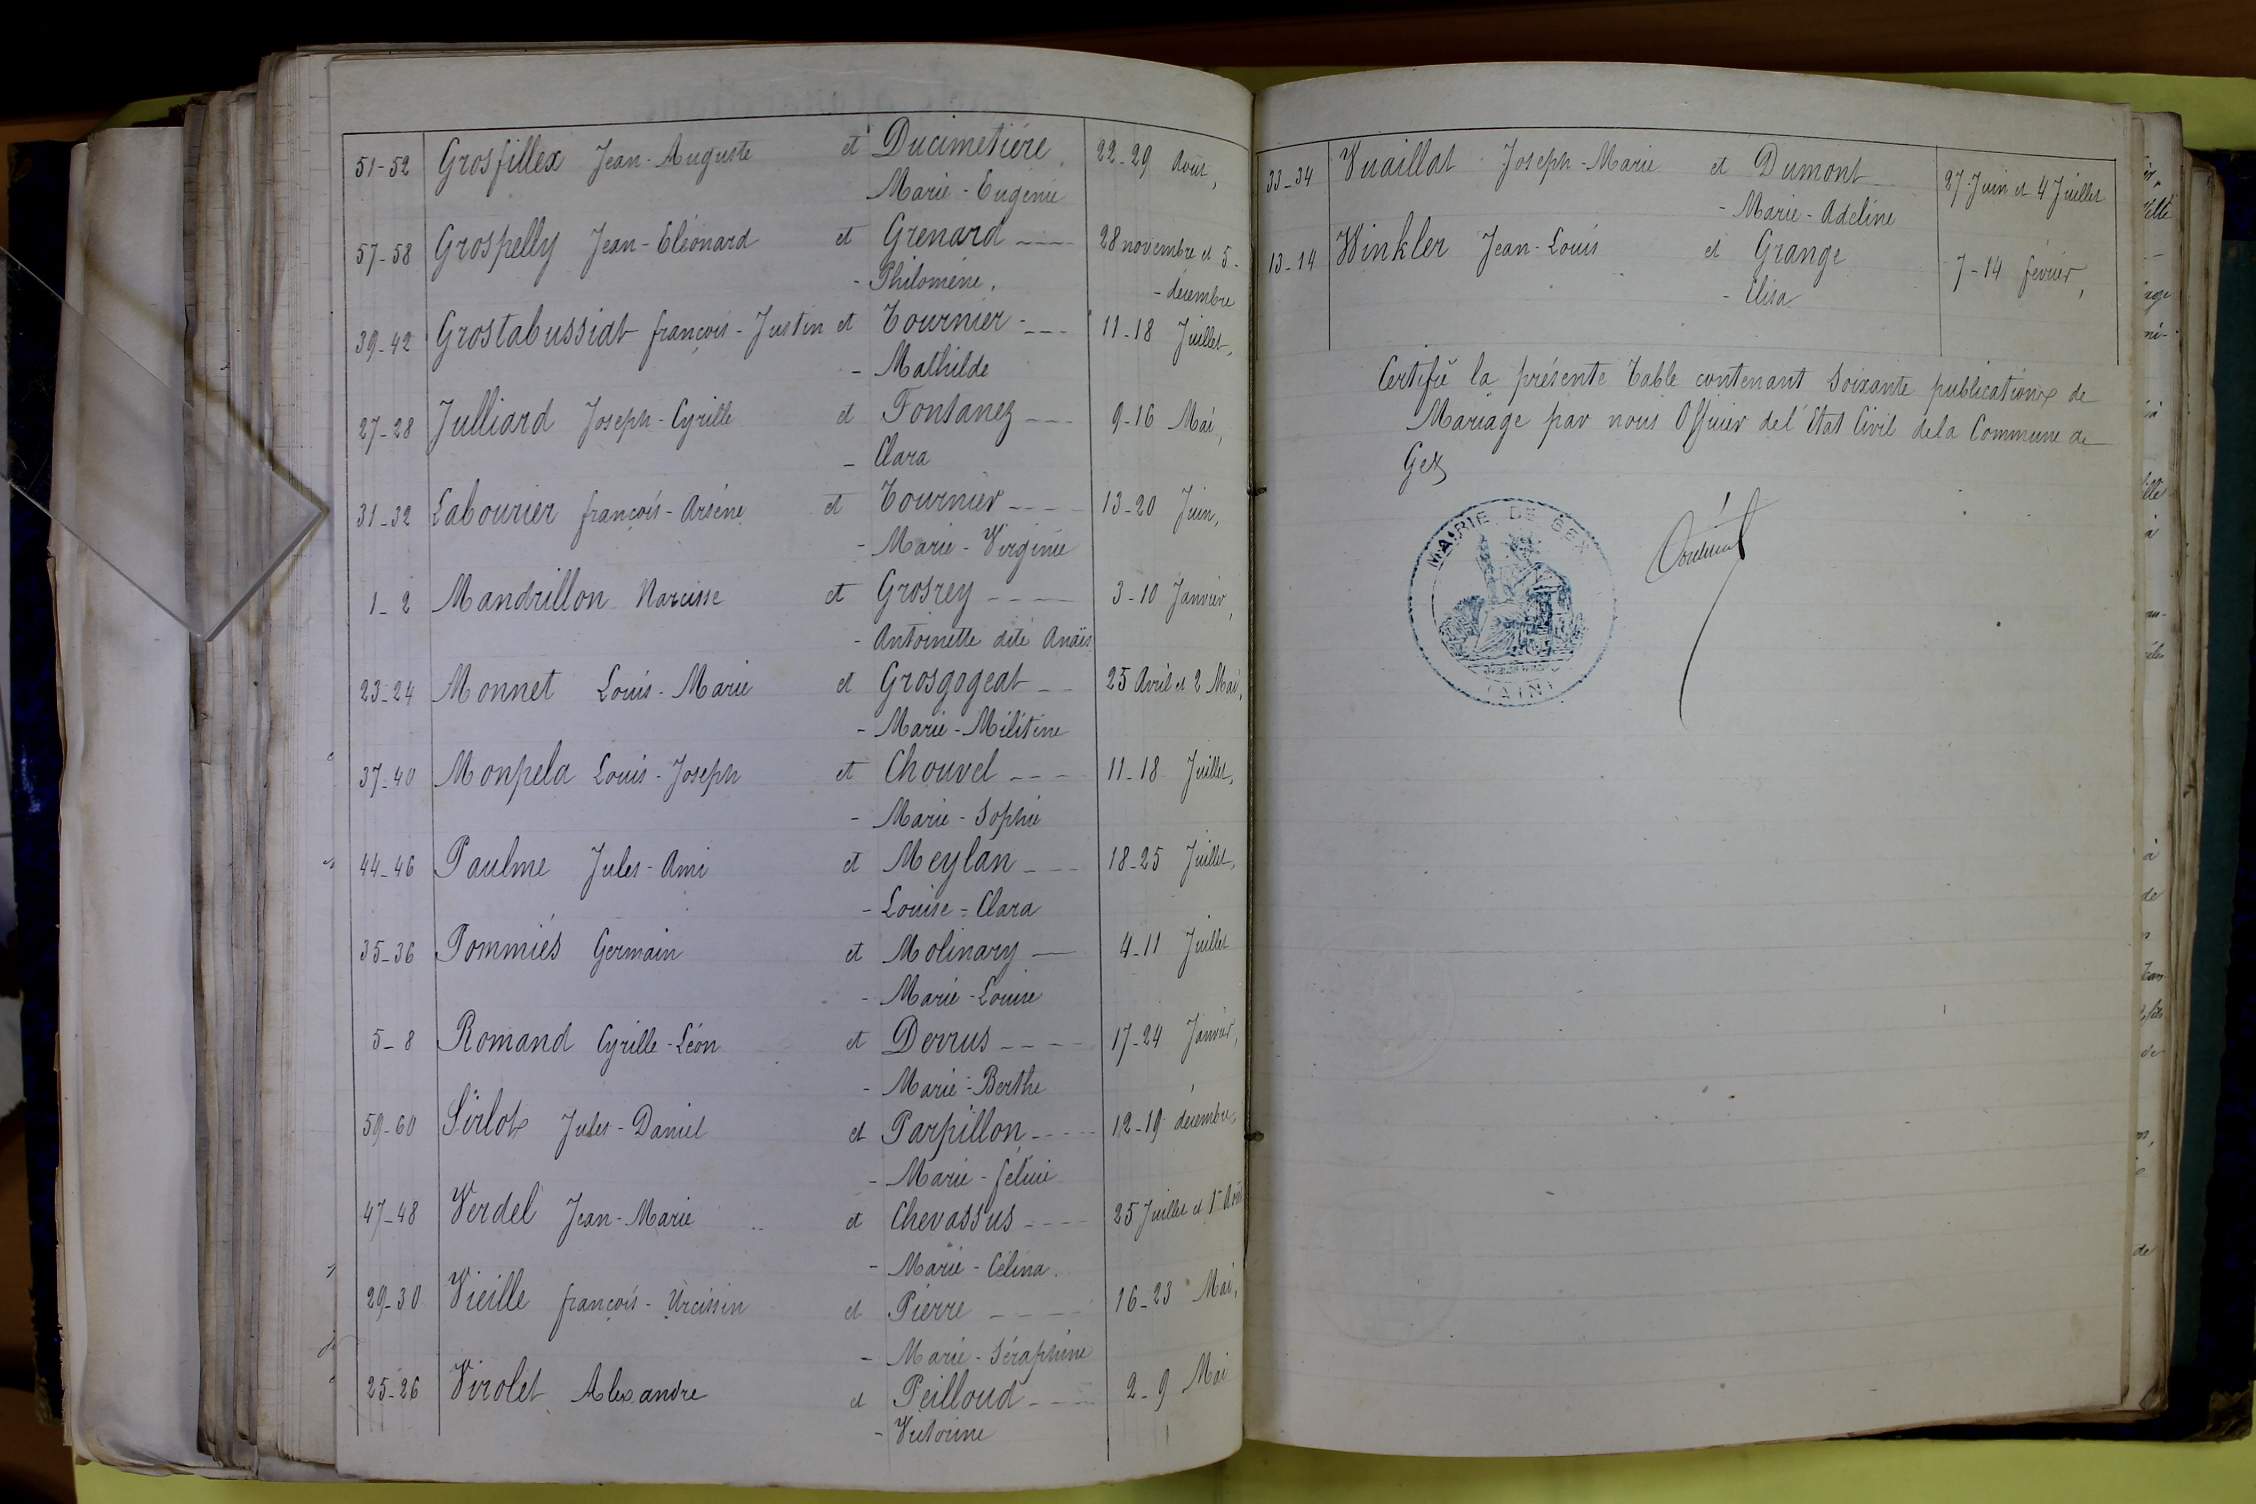 51-52 Grosfillex Jean-Auguste et Ducimetière 22-29 Août,
Marie-Eugénie
57-58 Grospelly Jean-Eléonard et Grenard ---- 28 novembre et 5-
- Philomène, - décembre
39-42 Grostabussiat françois-Justin et Tournier --- 11-18 Juillet,
- Mathilde
27-28 Julliard Joseph-Cyrille et Fontanez --- 9-16 Mai,
- Clara
31-32 Labourier françois-Arsène et Tournier ---- 13-20 Juin,
- Marie-Virginie
1-2 Mandrillon Narcisse et Grosrey ---- 3-10 Janvier,
- Antoinette dite Anaïs
23-24 Monnet Louis-Marie et Grosgogeat -- 25 Avril et 2 Mai,
- Marie-Militine
37-40 Monpela Louis-Joseph et Chouvel --- 11-18 Juillet,
- Marie-Sophie
44-46 Paulme Jules-Ami et Meylan --- 18-25 Juillet,
- Louise=Clara
35-36 Pommiés Germain et Molinary — 4-11 Juillet
- Marie-Louise
5-8 Romand Cyrille-Léon et Derrus ---- 17-24 Janvier,
- Marie-Berthe
59-60 Sirlot Jules-Daniel et Parpillon ---- 12-19 décembre,
- Marie-
47-48 Verdel Jean-Marie et Chevassus ---- 25 Juillet et 1er Août
- Marie-Célina.
29-30 Vieille françois-Urcissin et Pierre ---- 16-23 Mai,
- Marie-Séraphine
25-26 Virolet Alexandre et Peilloud ---- 2-9 Mai
- Victorine
33-34 Vuaillat Joseph-Marie et Dumont 27 Juin et 4 Juillet
- Marie-Adeline
13-14 Winkler Jean-Louis et Grange 7-14 février,
- Elisa
Certifié la présente Table contenant Soixante publications de
Mariage par nous Officier de l'Etat Civil de la Commune de
Gex
MAIRIE DE GEX
(AIN)